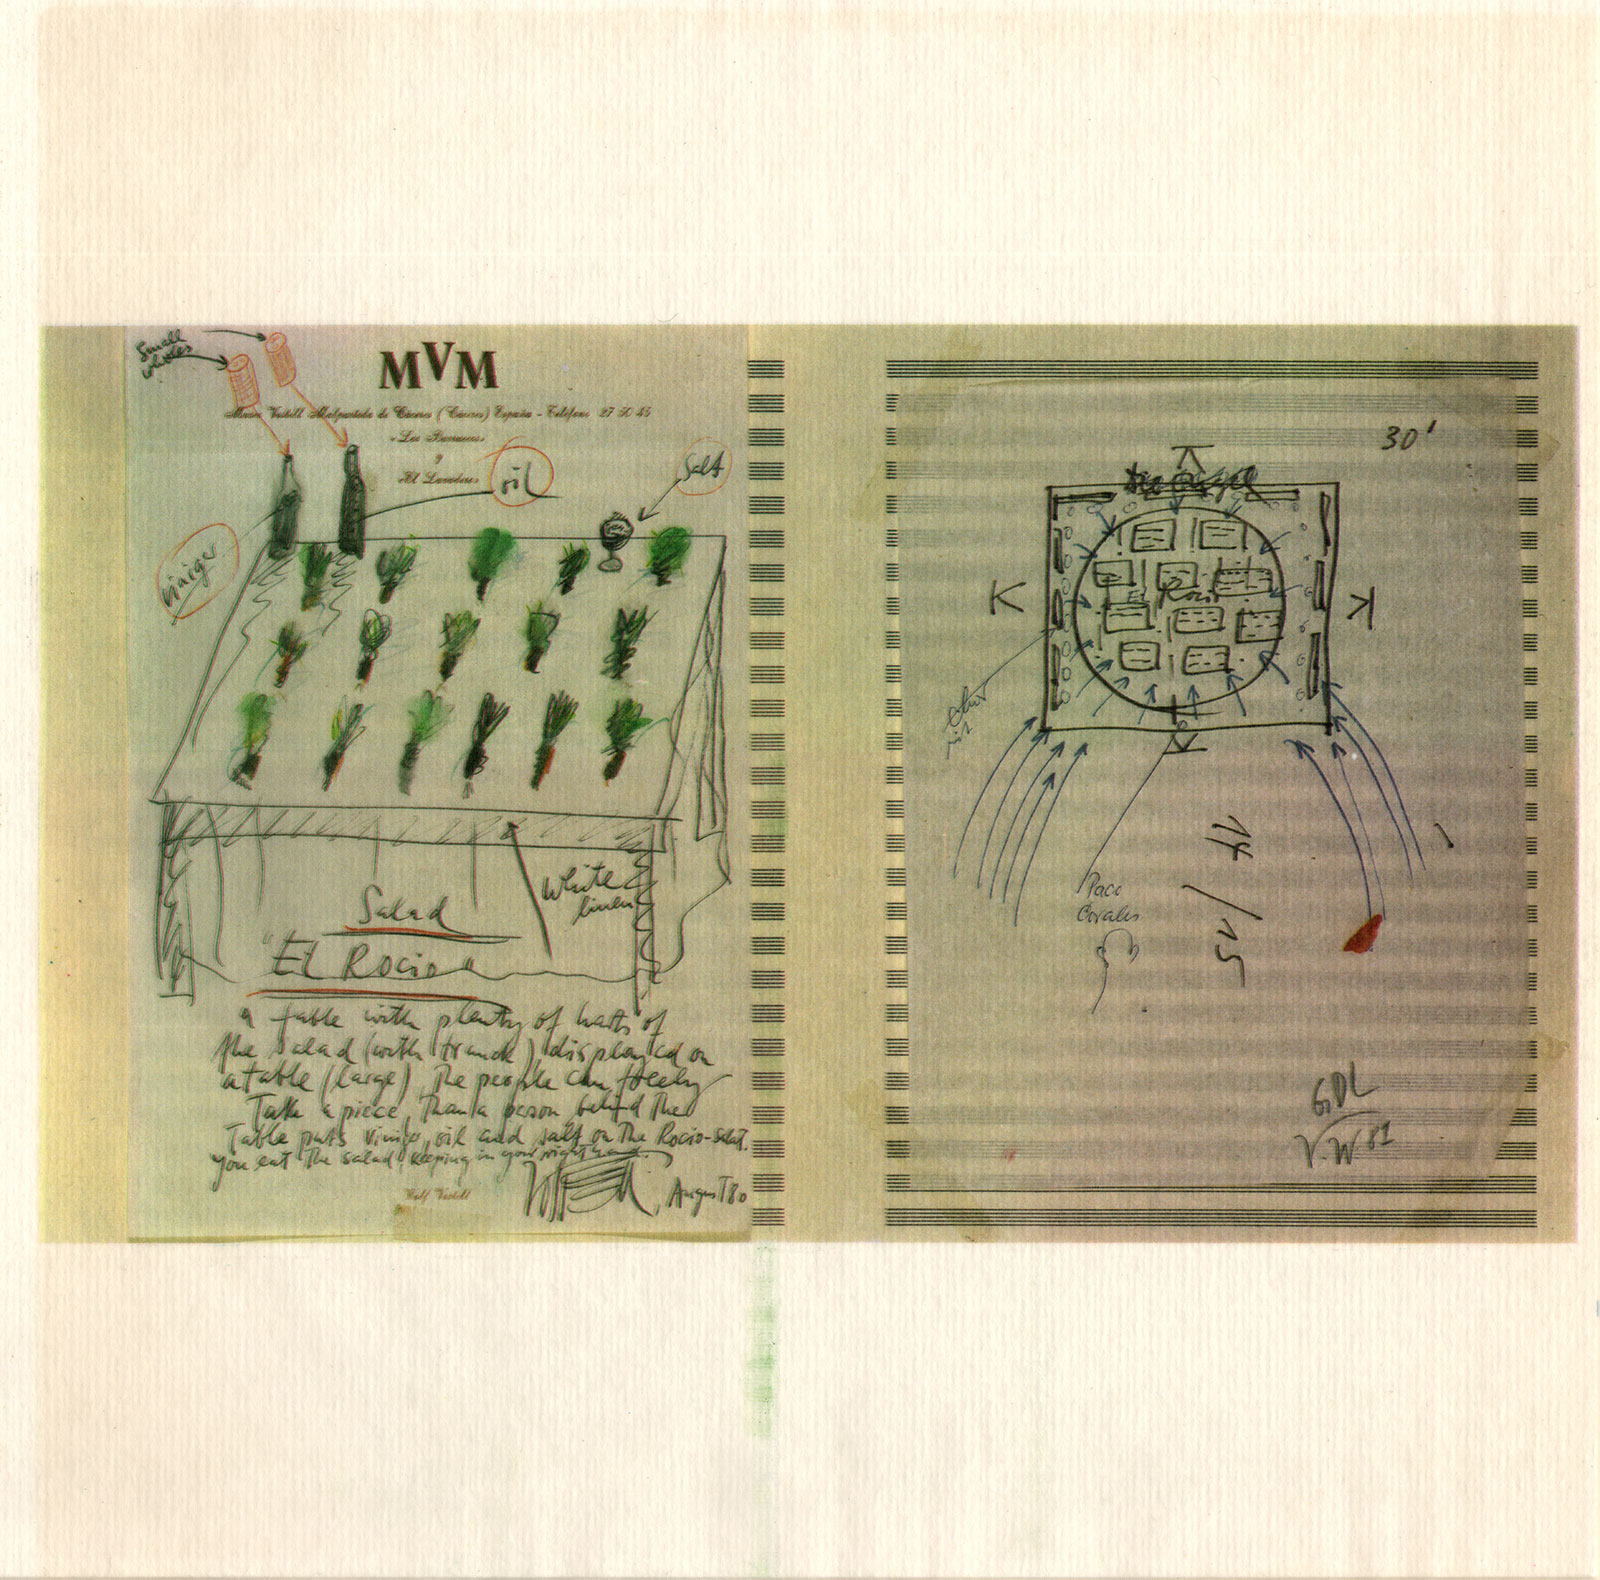 Small
MVM
Museo Vostell Malpartida de Cáceres (Cáceres) España - Teléfono 27 50 45
«Los Barruecos»
y
«El Lavadero»
oil
Salt
White
linen
Salad
"El Rocio"
a table with plenty of harts of
the salad (with trunck) displayed on
a table (large), the people can freely
Take a piece, Than a person behind the
Table puts oil and salt on the Rocio-Salat.
you eat the salad, keeping in your right hand.
August 80
Wolf Vostell
30'
El Rocio
K
K
Paco
Corales
GDL
V.W 81